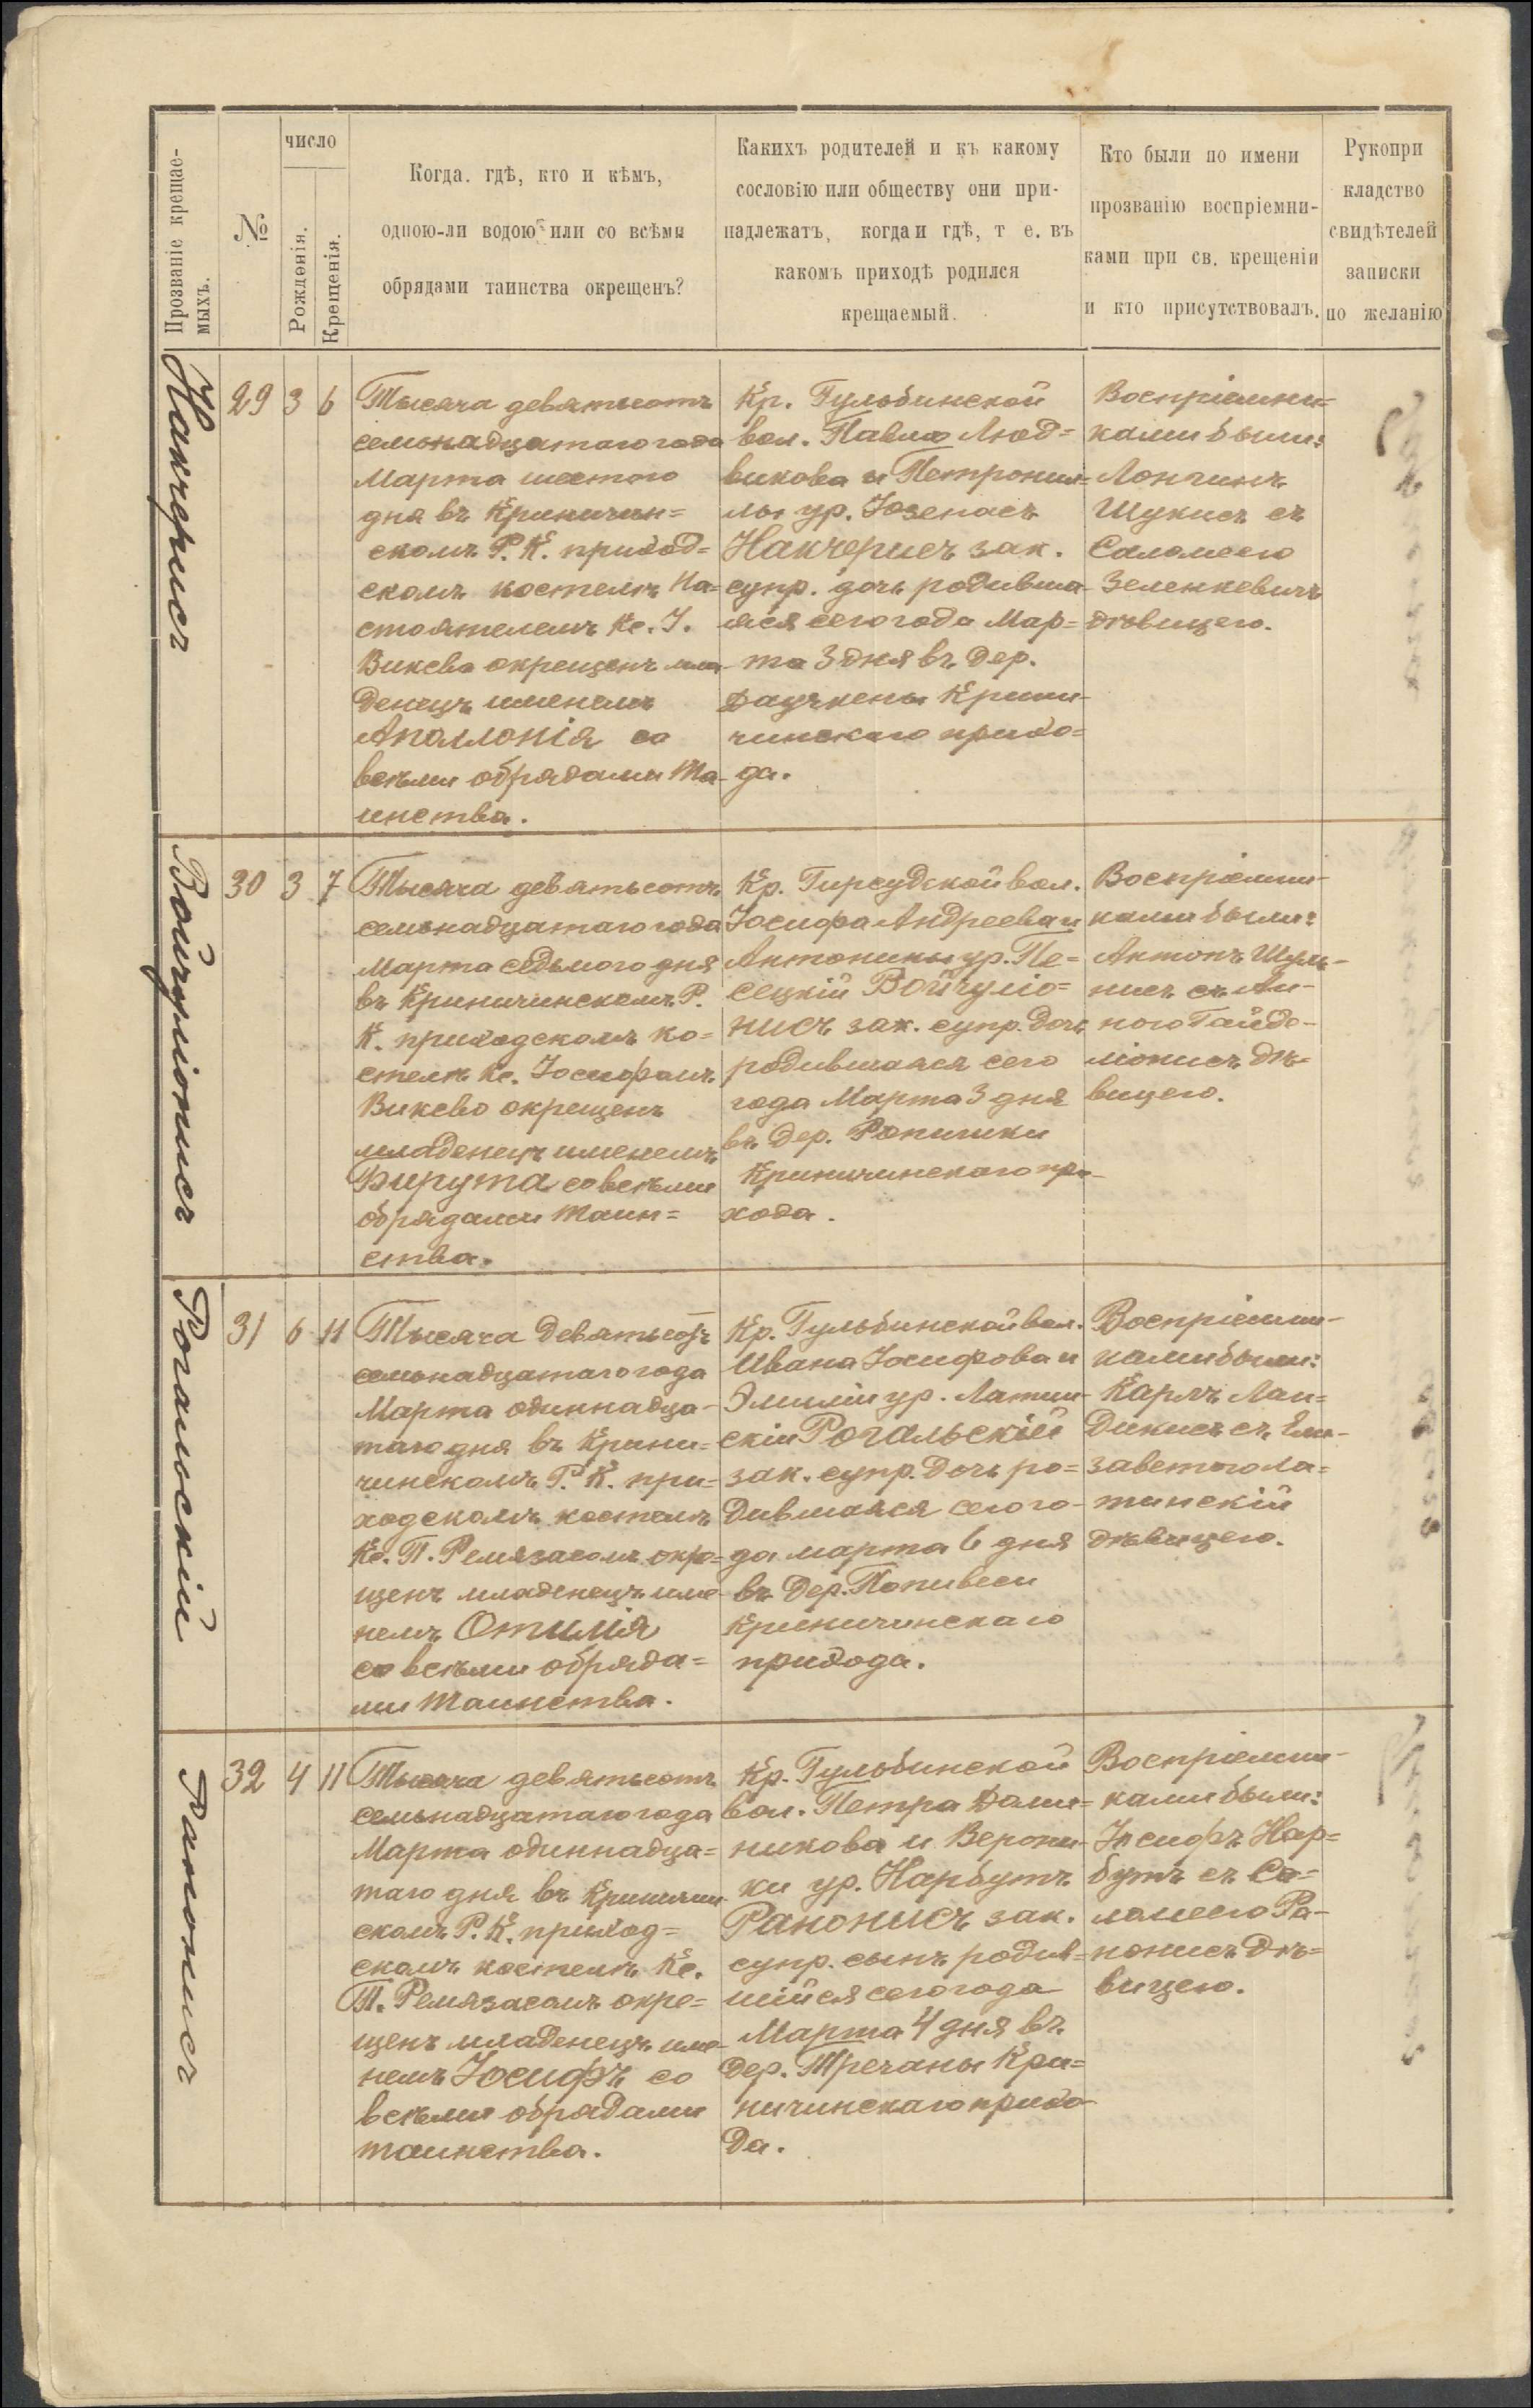 Прозваніе крещае-
мыхъ.
№
число
Рожденія.
Крещенія.
Когда. гдѣ, кто и кѣмъ,
одною-ли водою или со всѣми
обрядами таинства окрещенъ?
Какихъ родителей и къ какому
сословію или обществу они при-
надлежатъ, когда и гдѣ, т е. въ
какомъ приходѣ родился
крещаемый.
Кто были по имени
прозванію воспріемни-
ками при св. крещеніи
и кто присутствовалъ.
Рукопри
кладство
свидѣтелей
записки
по желанію
Накчерисъ
29
3
6
Тысяча девятьсотъ
семьнадцатаго года
Марта шестого
дня въ Криничин=
скомъ Р. К. приход=
скомъ костелѣ На=
стоятелемъ Кс. І.
Виксво окрещенъ мла-
денецъ именемъ
Аполлонія со
всѣми обрядами Та-
инства.
Кр. Гульбинской
вол. Павла Люд=
викова и Петронил=
лы ур. Юзенасъ
Накчерисъ зак.
супр. дочь родивша-
яся сего года Мар=
та 3 дня въ дер.
Даучкены Крини-
чинскаго прихо=
да.
Воспріемни=
ками были:
Лонгинъ
Шукисъ съ
Саломеею
Зеленкевичъ
дѣвицею.
Войчуліонисъ
30
3
7
Тысяча девятьсотъ
семьнадцатаго года
Марта седьмого дня
въ Криничинскомъ Р.
К. приходскомъ ко=
стелѣ Кс. Іосифомъ
Виксво окрещенъ
младенецъ именемъ
Бирута со всѣми
обрядами Таин=
ства.
Кр. Гирсудской вол.
Іосифа Андреева и
Антонины ур. Пе=
сецкій Войчуліо=
нисъ зак. супр. дочь
родившаяся сего
года Марта 3 дня
въ дер. Рапшики
Криничинскаго при-
хода.
Воспріемни-
ками были:
Антонъ Шуль-
нисъ съ Ан-
ною Гайде-
ліонисъ дѣ-
вицею.
Рогальскій
31
6
11
Тысяча девятьсотъ
семьнадцатаго года
Марта одиннадца-
таго дня въ Крини=
чинскомъ Р. К. при=
ходскомъ костелѣ
Кс. П. Ремязасомъ окре=
щенъ младенецъ име-
немъ Отилія
со всѣми обряда=
ми Таинства.
Кр. Гульбинской вол.
Ивана Іосифова и
Эмиліи ур. Латин-
скій Рогальскій
зак. супр. дочь ро=
дившаяся сего го-
да марта 6 дня
въ дер. Попивеси
Криничинскаго
прихода.
Воспріемни-
ками были:
Карлъ Лан=
дикисъ съ Ели-
заветою Ла=
тинскій
дѣвицею.
Рапонисъ
32
4
11
Тысяча девятьсотъ
семьнадцатаго года
Марта одиннадца=
таго дня въ Криничин-
скомъ Р. К. приход=
скомъ костелѣ Кс.
П. Ремязасомъ окре=
щенъ младенецъ име-
немъ Іосифъ со
всѣми обрядами
таинства.
Кр. Гульбинской
вол. Петра Доми=
никова и Верони-
ки ур. Нарбутъ
Рапонисъ зак.
супр. сынъ родив=
шійся сего года
Марта 4 дня въ
дер. Тречаны Кри=
ничинскаго прихо-
да.
Воспріемни-
ками были:
Іосифъ Нар=
бутъ съ Са=
ломеею Ра-
понисъ дѣ=
вицею.